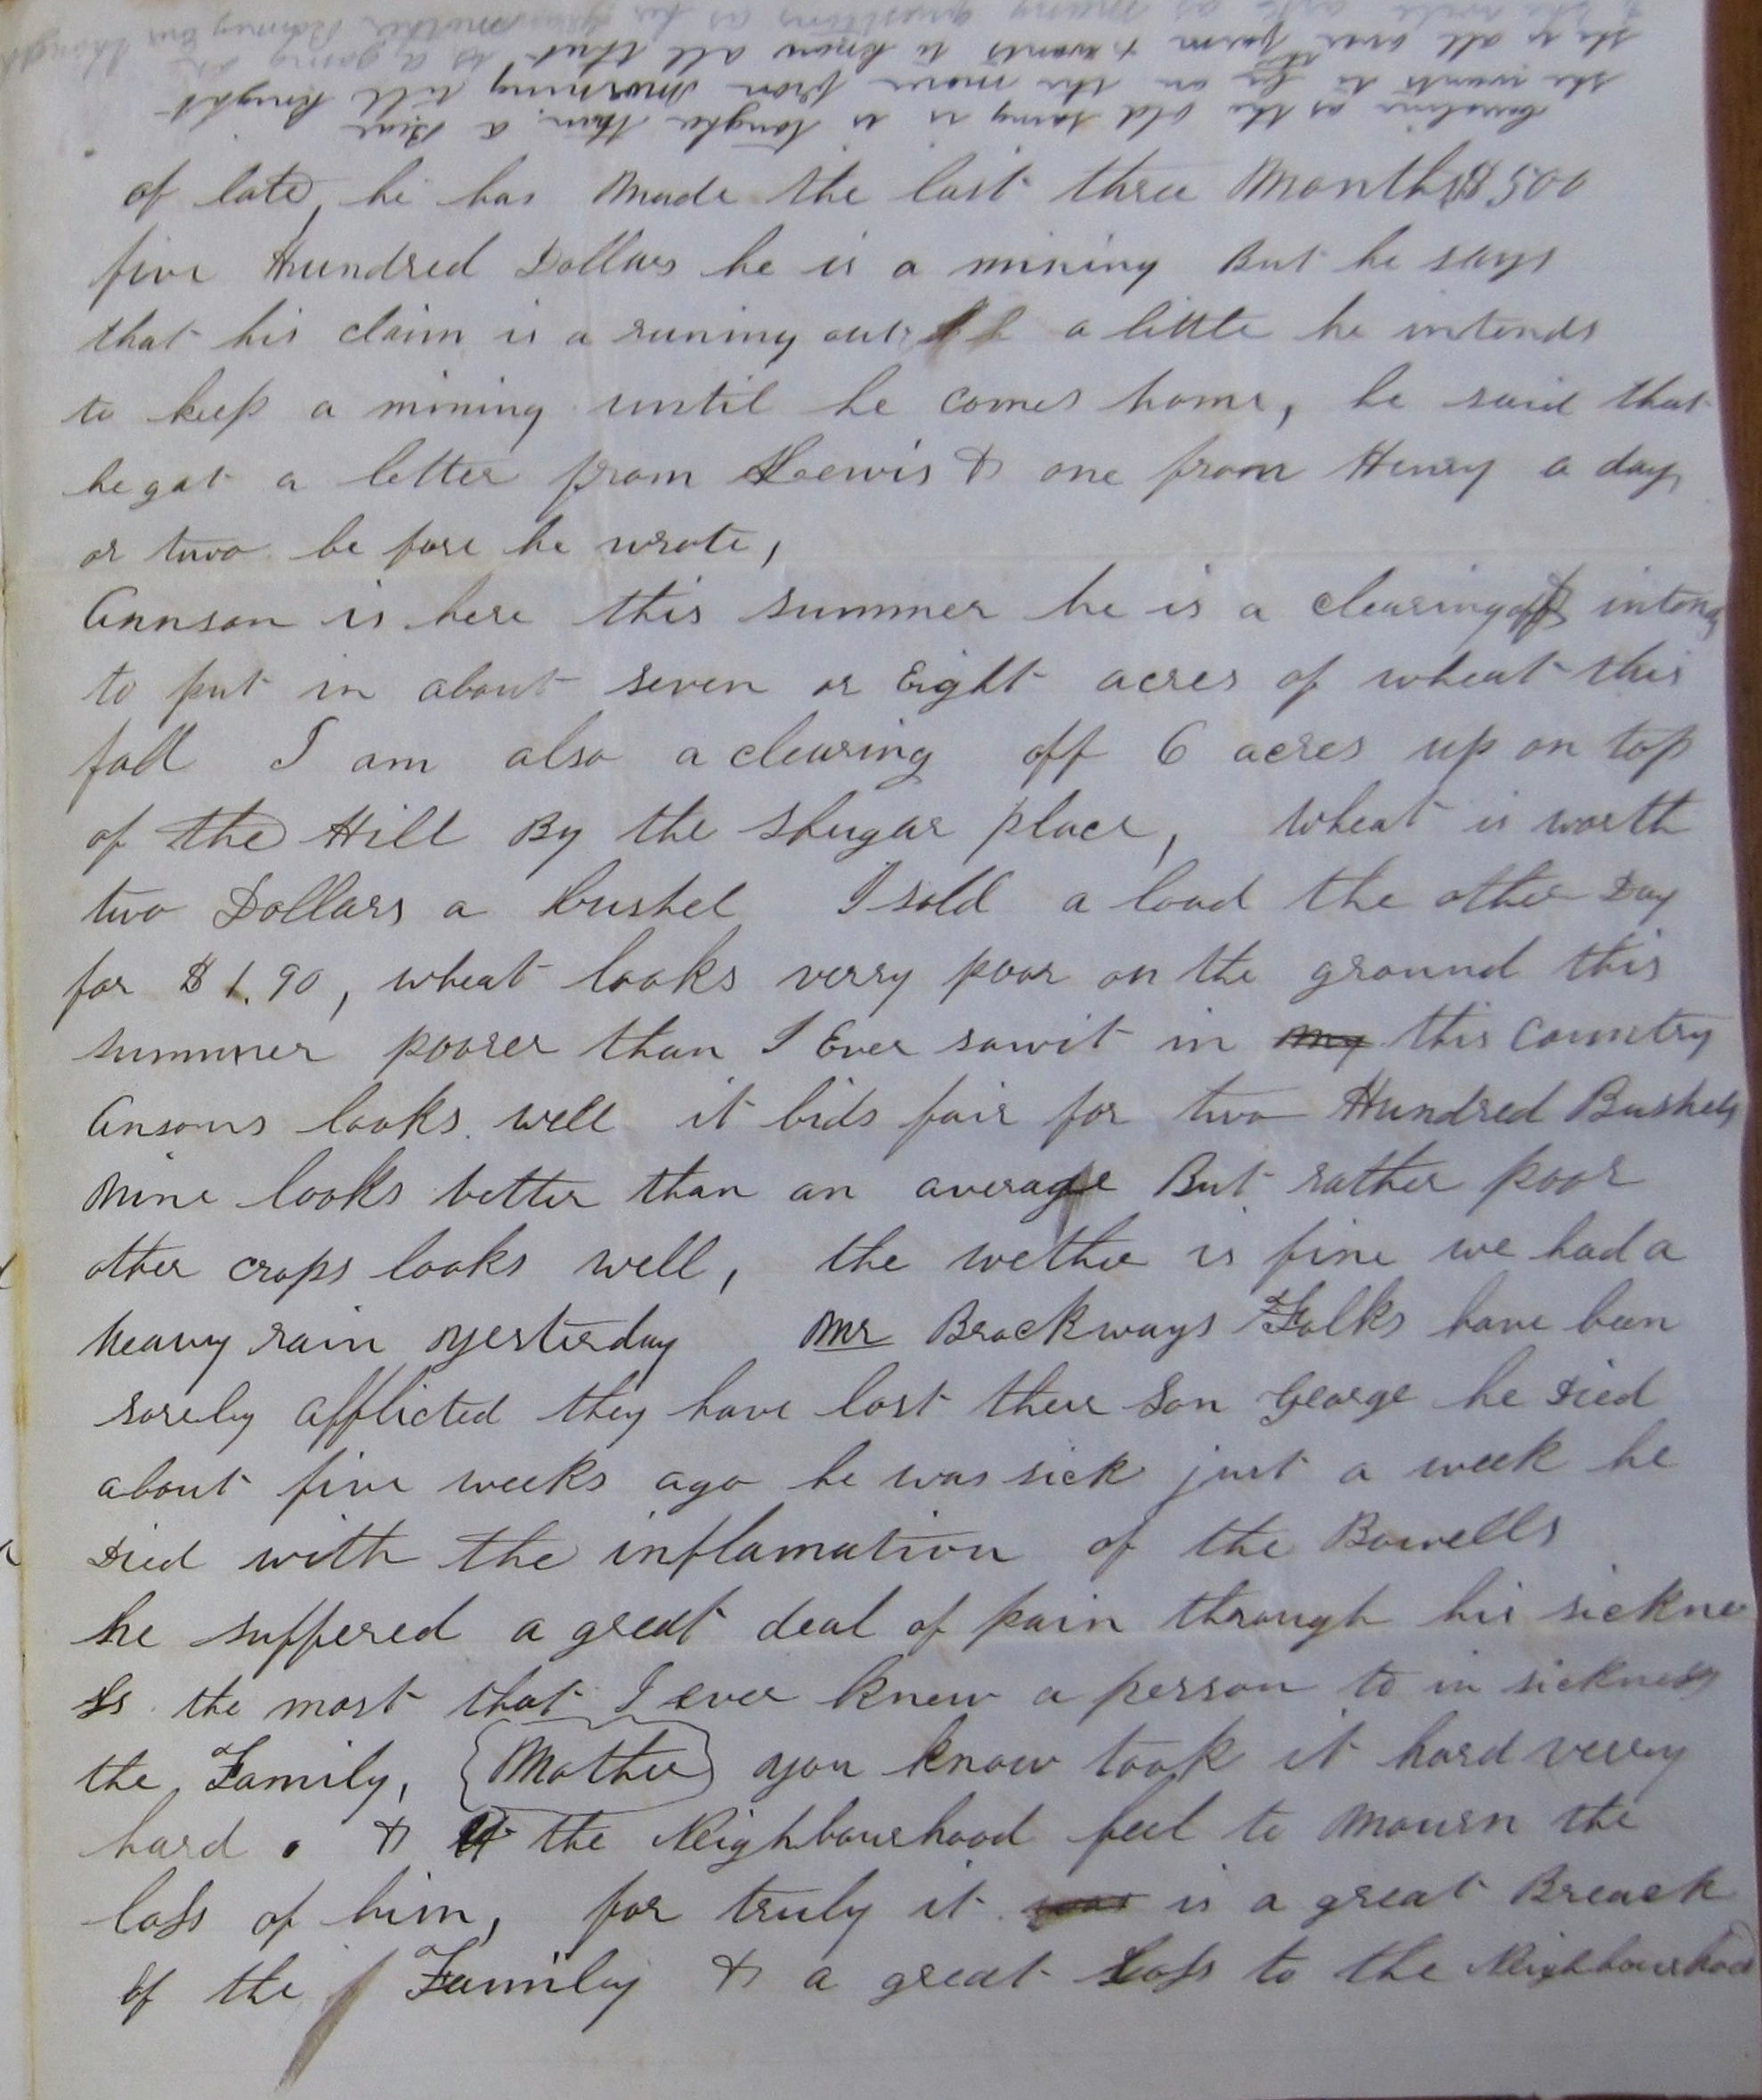 Caroline as the old saing is is tougher than a Bear
she wants to be on the move from morning till knight
she is all over the farm & wants to know all that is a going on
as many questions as her grandmother
of late, he has made the last three Months $500
five Hundred Dollars he is a mining But he says
that his claim is a runing out a little he intends
to keep a mining until he comes home, he said that
he got a letter from Loewis & one from Henry a day
or two be fore he wrote,
Annson is here this summer he is a clearing off intends
to put in about seven or Eight acres of wheat this
fall I am also a clearing off 6 acres up on top
of the Hill By the Shugar place, wheat is worth
two Dollars a bushel I sold a load the other Day
for $1.90, wheat looks verry poor on the ground this
summer poorer than I Ever sawit in my this Country
Ansons looks well it bids fair for two Hundred Bushels
Mine looks better than an average But rather poor
other crops looks well, the wether is fine we had a
heavy rain yesterday Mr Brockways Folks have been
sorely afflicted they have lost their Son George he Died
about five weeks ago he was sick just a week he
Died with the inflamation of the Bowells
he suffered a great deal of pain through his sickne
ss the most that I ever knew a person to in sickness
the Family, {Mother} you know took it hard verry
hard. & the Neighbourhood feel to Mourn the
loss of him, for truly it was is a great Breack
of the Family & a great Loss to the Neighbourhood